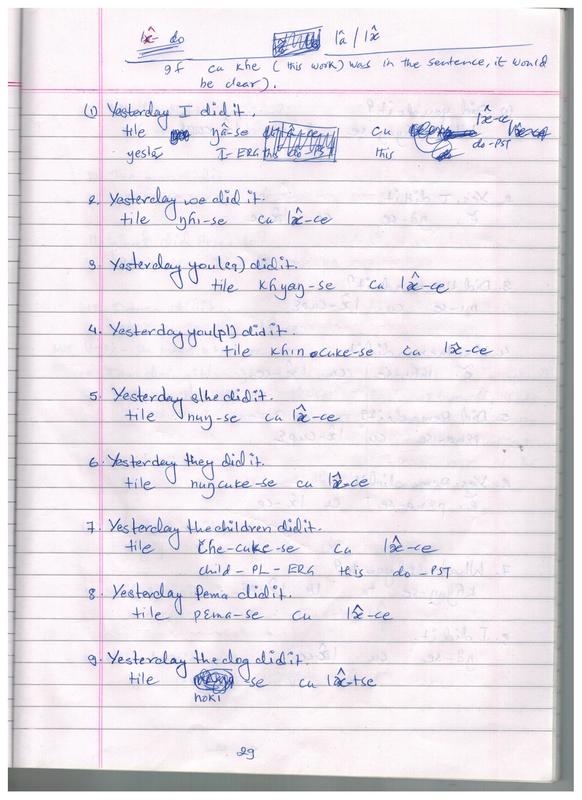 læ̂ do lâ / læ̂
If cu khe (this work) was in the sentence, it would
be clear).
(1) Yesterday I did it.
tile ŋâ-se cu læ̂-ce
yester I-ERG this do-PST
2. Yesterday we did it.
tile ŋhi-se cu læ̂-ce
3. Yesterday you(sg) did it.
tile khyaŋ-se cu læ̂-ce
4. Yesterday you(pl) did it.
tile khin cuke-se cu læ̂-ce
5. Yesterday s/he did it.
tile nuŋ-se cu læ̂-ce
6. Yesterday they did it.
tile nuŋcuke-se cu læ̂-ce
7. Yesterday the children did it.
tile che-cuke-se cu læ̂-ce
child-PL-ERG this do-PST
8. Yesterday Pema did it.
tile pema-se cu læ̂-ce
9. Yesterday the dog did it.
tile noki -se cu læ̂-tse
29